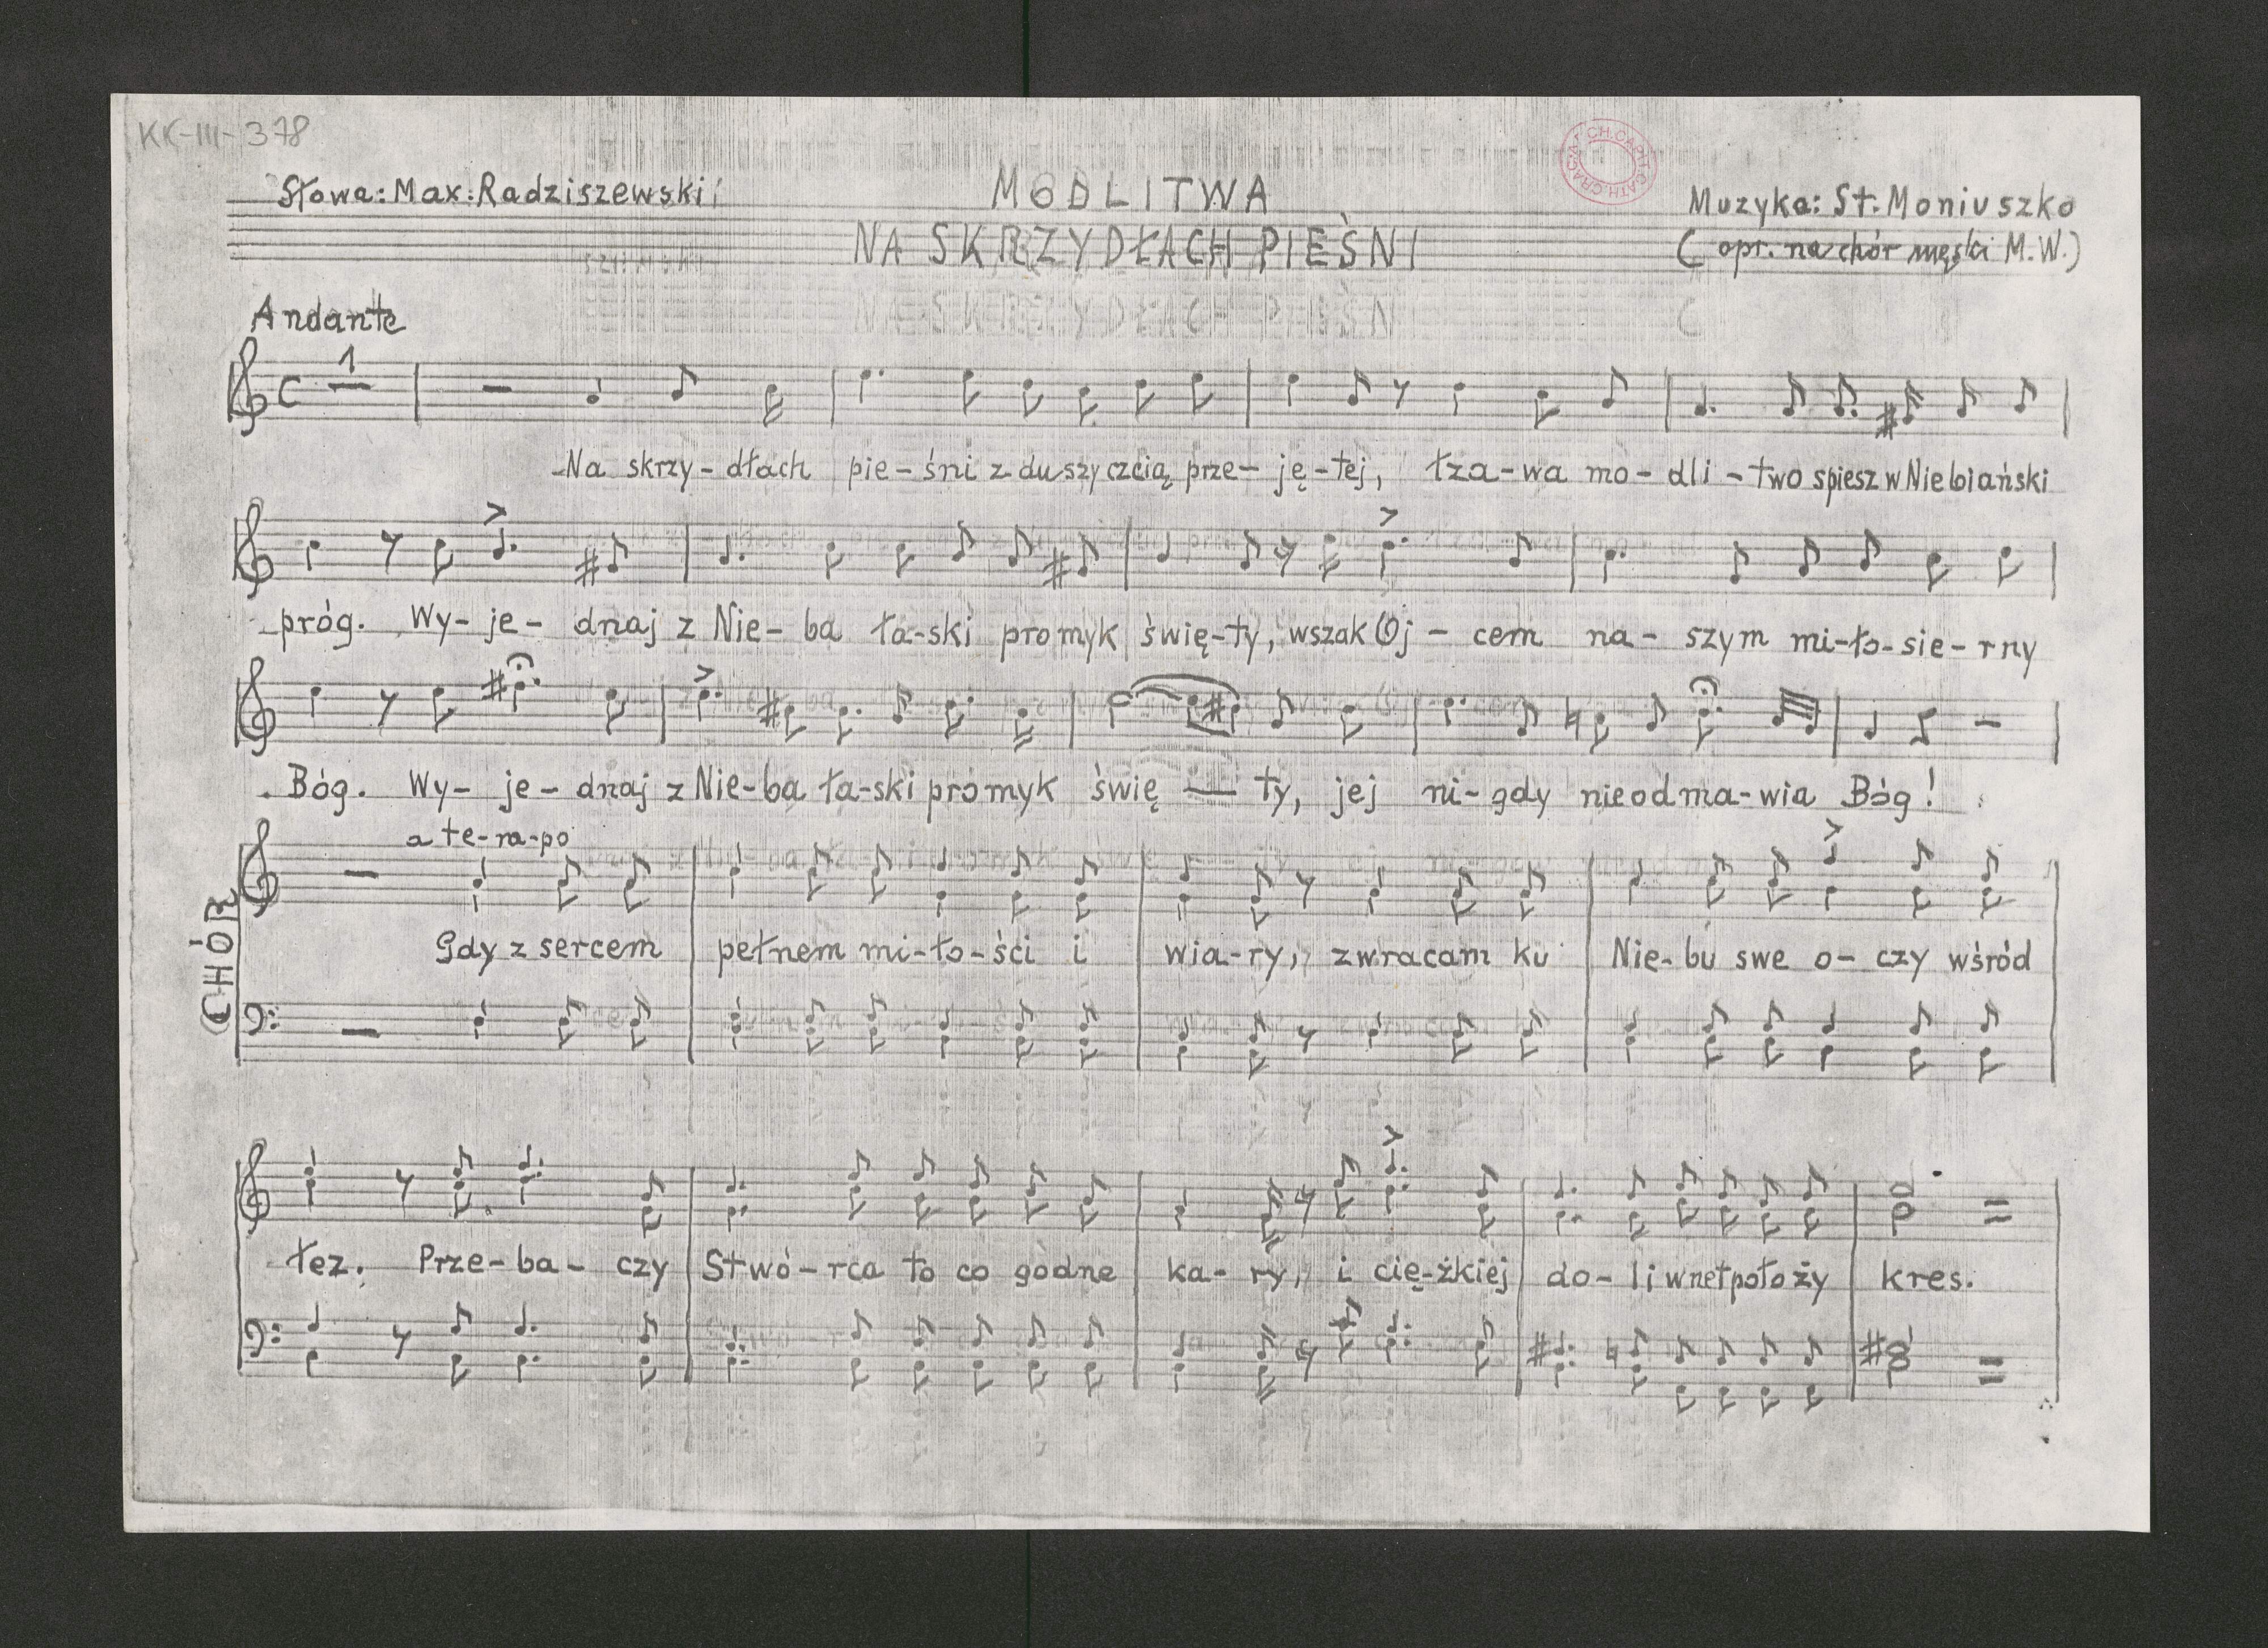 KK-III-378
Słowa: Max. Radziszewski
MODLITWA
NA SKRZYDŁACH PIEŚNI
Muzyka: St. Moniuszko
(opr. na chór męski M.W.)
Andante
1
Na skrzy-dłach pie-śni z duszy czcią prze-ję-tej, łza-wa mo-dli-two spiesz w Niebiański
próg. Wy-je-dnaj z Nie-ba ła-ski promyk świę-ty, wszak Oj-cem na-szym mi-ło-sie-rny
Bóg. Wy-je-dnaj z Nie-ba ła-ski promyk świę — ty, jej ni-gdy nieodma-wia Bóg!
a te-m-po
CHÓR
Gdy z sercem pełnem mi-ło-ści i wia-ry, zwracam ku Nie-bu swe o-czy wśród
łez. Prze-ba-czy Stwó-rca to co godne ka-ry, i cię-żkiej do-li wnet położy kres.